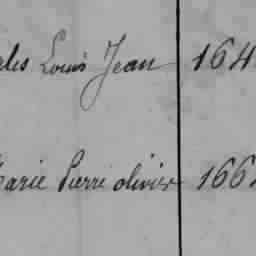 les Louis Jean 164
Marie Pierre olivier 166